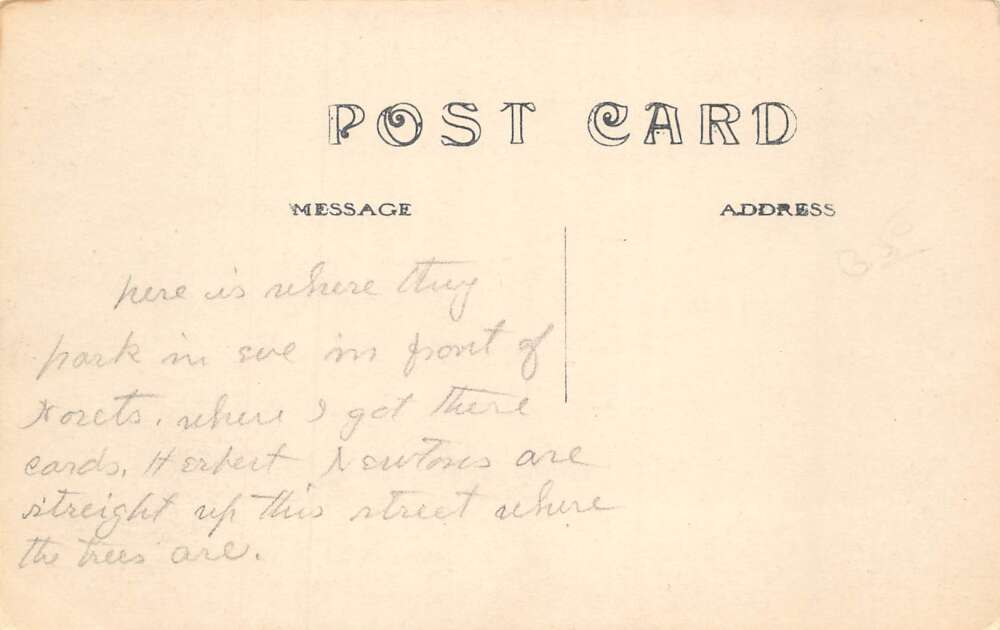 POST CARD
MESSAGE
ADDRESS
here is where they
park in eve in front of
where I got these
cards. Herbert Newtons are
streight up this street where
the trees are.